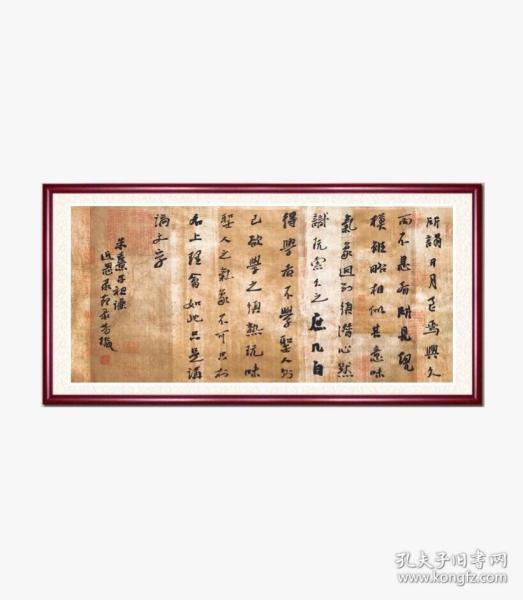 所謂日月至焉與久
而不息者所見規
模雖略相似其意味
氣象迥別須潛心默
識玩索久之庶几自
得學者不學聖人則
已欲學之須熟玩味
聖人之氣象不可只於
名上理會如此只是講
論文字
朱熹呂祖謙
近思录
孔夫子旧书网
www.kongfz.com